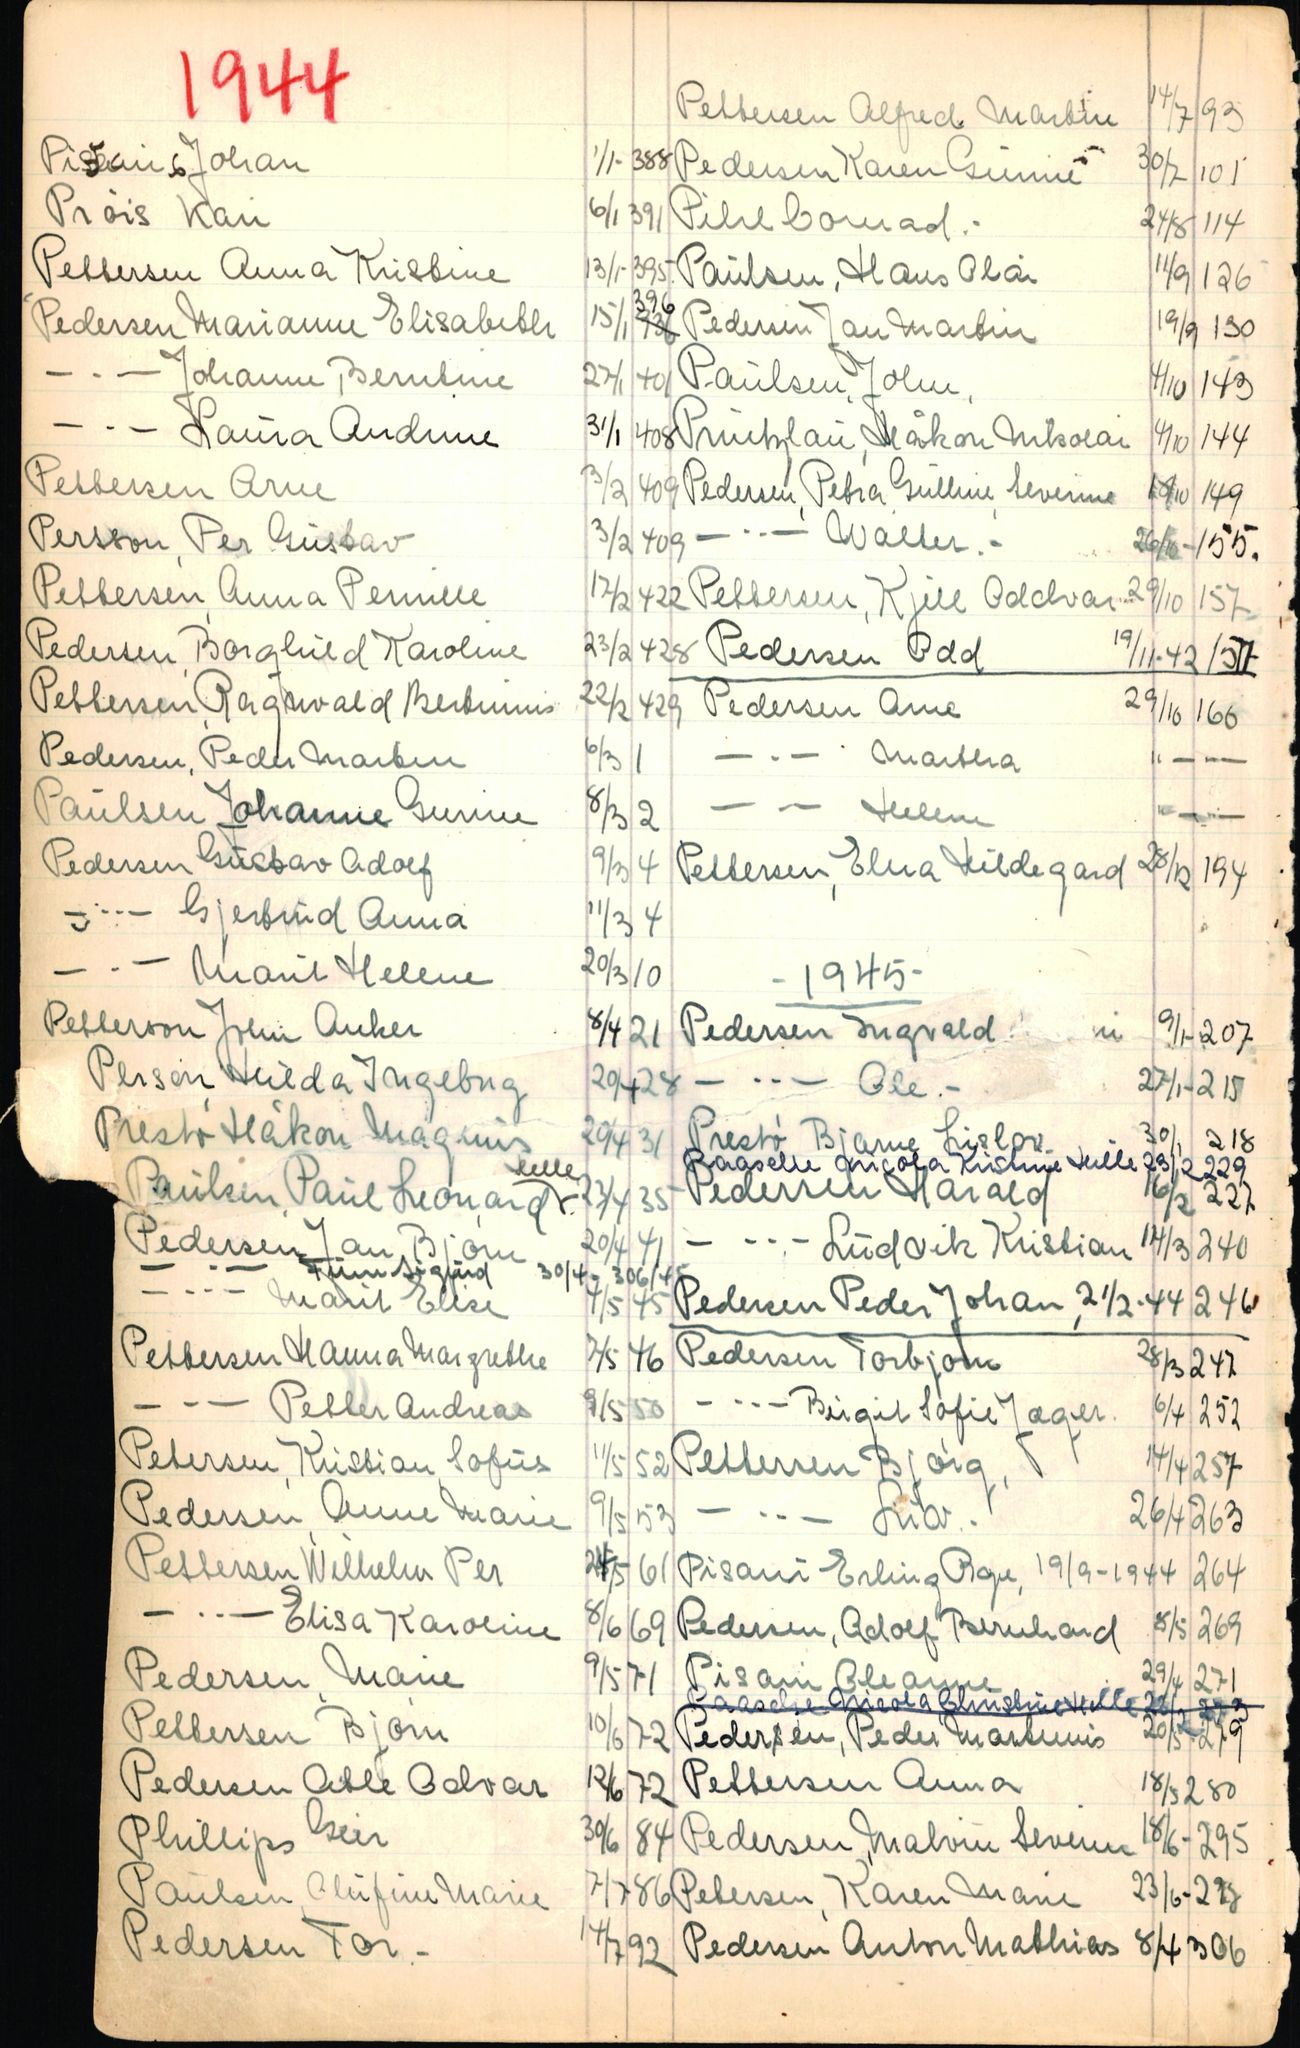 1944
Pisani, Johan 1/1- 388
Prøis Kari 6/1 391
Pettersen Anna Kristine 13/1- 395
Pedersen Marianne Elisabeth 15/1 396
— · — Johanne Berntine 27/1 401
— · — Laura Andrine 31/1 408
Pettersen Arne 3/2 409
Persson, Per Gustav 3/2 409
Pettersen, Anna Pernille 17/2 422
Pedersen, Borghild Karoline 23/2 428
Pettersen, Ragnvald Bertinius 22/2 429
Pedersen, Peder Martin 6/3 1
Paulsen Johanne Gurine 8/3 2
Pedersen Gustav Adolf 9/3 4
— · — Gjertrud Anna 11/3 4
— · — Marit Helene 20/3 10
Petterson John Anker 8/4 21
Person, Hilda Ingeborg 20/4 28
Prestø Håkon Magnus 20/4 31
Paulsen, Paul Leonard Helle 23/4 35
Pedersen, Jan Bjørn 20/4 41
— · — Finn Sigurd 30/4 - 306/45
— · — Marit Elise 4/5 45
Pettersen Hanna Margrethe 7/5 46
— · — Petter Andreas 9/5 50
Petersen, Kristian Sofus 11/5 52
Pedersen, Anne Marie 9/5 53
Pettersen Wilhelm Per 24/5 61
— · — Elisa Karoline 8/6 69
Pedersen, Marie 9/5 71
Pettersen Bjørn 10/6 72
Pedersen Atle Odvar 12/6 72
Phillips Geir 30/6 84
Paulsen, Olufine Marie 7/7 86
Pedersen Tor.- 14/7 92
Pettersen Alfred Martin 14/7 93
Pedersen Karen Gunnie 30/7 101
Pihl Conrad.- 24/8 114
Paulsen, Hans Olai 11/9 126
Pedersen Jan Martin 19/9 130
Paulsen, John, 4/10 143
Printzlau, Håkon Nikolai 4/10 144
Pedersen, Petra Gulline, Severine 149
— · · — Walter.- 26/10 - 155.
Pettersen, Kjell Oddvar 29/10 157
Pedersen Odd 19/11-42 157
Pedersen Arne 29/10 166
— · — Martha " — · —
— · — Helene " — · —
Pettersen, Elna Hildegard 28/12 194
- 1945 -
Pedersen Ingvald 9/1- 207
— · · — Ole.- 27/1- 215
Prestø Bjarne Lislov 30/1 218
Paasche Nicola Kristine Helle 23/12 229
Pedersen Harald 16/2 227
— · · — Ludvik Kristian 14/3 240
Pedersen Peder Johan, 21/2-44 246
Pedersen Torbjørn 28/3 247
— · · — Birgit Sofie Jæger. 6/4 252
Pettersen Bjørg, 14/4 257
— · · — Liv.- 26/4 263
Pisani Erling Roger, 19/9-1944 264
Pedersen, Adolf Bernhard 8/5 269
Pisani Oleanne 29/4 271
Paasche Nicola Christine Helle 22/12 273
Pedersen, Peder Martinius 20/5- 279
Pettersen Anna 18/5 280
Pedersen, Malvin Severin 18/6- 295
Petersen, Karen Marie 23/6- 298
Pedersen Anton Mathias 8/4 306